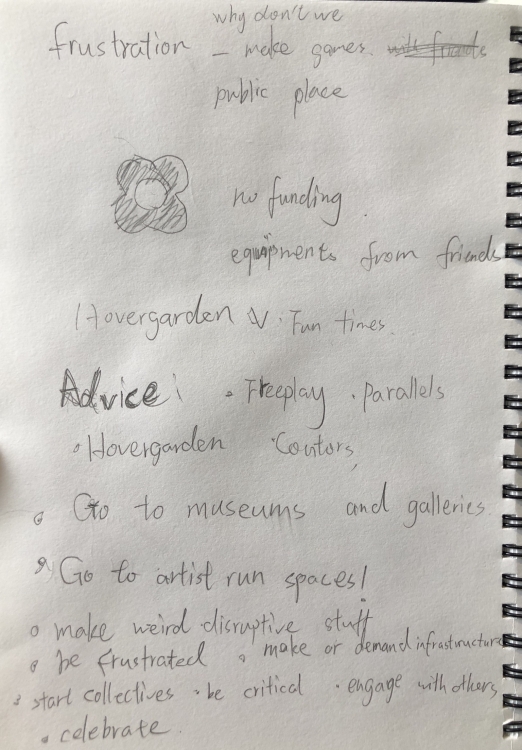 why don't we
frustration – make games. with friends
public place
no funding.
equipments from friends
Hovergarden V: Fun times.
Advice! • Freeplay • Parallels
• Hovergarden • Contors,
• Go to museums and galleries
• Go to artist run spaces!
• make weird disruptive stuff
• be frustrated • make or demand infrastructure
• start collectives • be critical • engage with others
• celebrate.